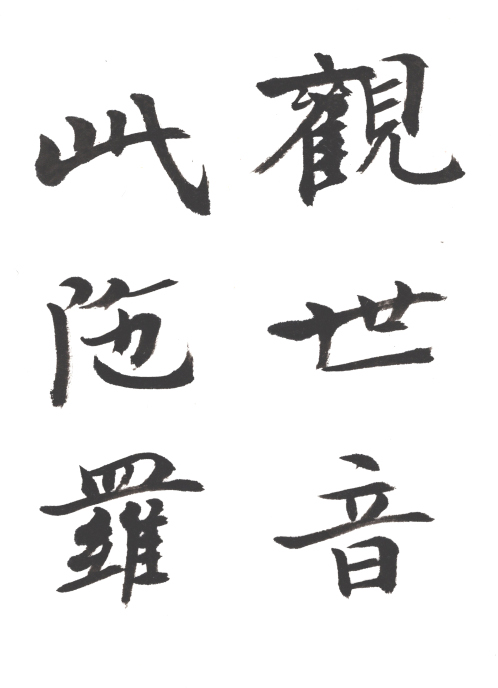 觀世音
此陁羅